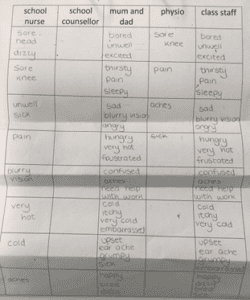 school nurse
school counsellor
mum and dad
physio
class staff
sore head
dizzy
bored
unwell
excited
sore knee
bored
unwell
excited
sore knee
thirsty
pain
sleepy
pain
thirsty
pain
sleepy
unwell
sick
sad
blurry vision
angry
aches
sad
blurry vision
angry
pain
hungry
very hot
frustrated
sick
hungry
very hot
frustrated
blurry vision
confused
aches
need help with work
confused
aches
need help with work
very hot
cold
itchy
very cold
embarrassed
cold
itchy
very cold
embarrassed
cold
upset
ear ache
grumpy
sick
upset
ear ache
grumpy
aches